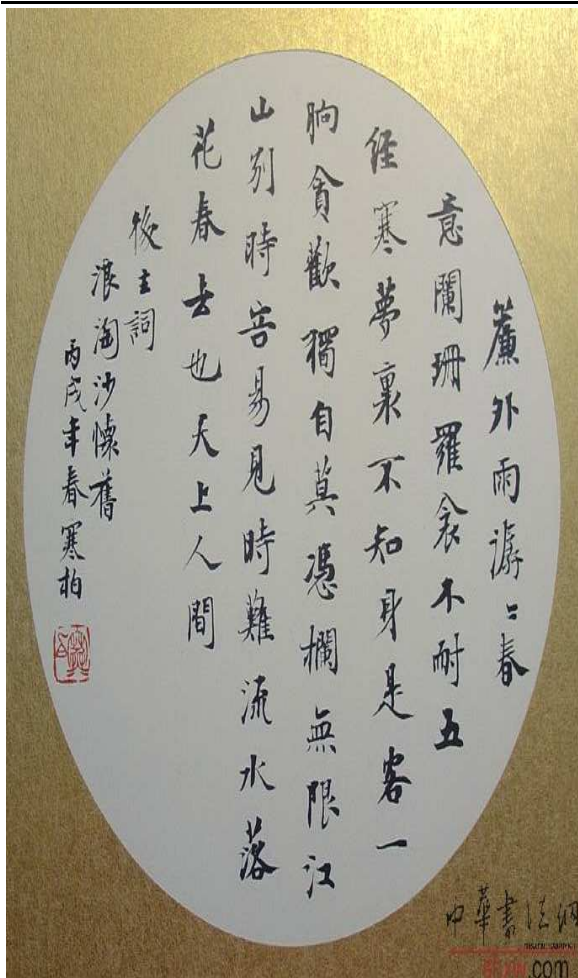 簾外雨潺〻春
意闌珊羅衾不耐五
經寒夢裏不知身是客一
晌貪歡獨自莫憑欄無限江
山別時容易見時難流水落
花春去也天上人間
後主詞
浪淘沙懷舊
丙戌年春寒柏
中華書法網
.com